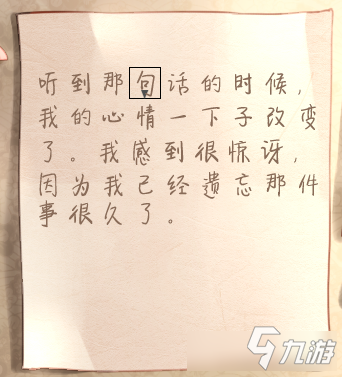 听到那句话的时候，
我的心情一下子改变
了。我感到很惊讶，
因为我已经遗忘那件
事很久了。
九游